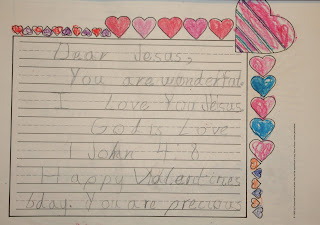 Dear Jesus,
You are wonderful.
I Love You Jesus
God is Love
1 John 4:8
Happy Valentines
Day. You are precious